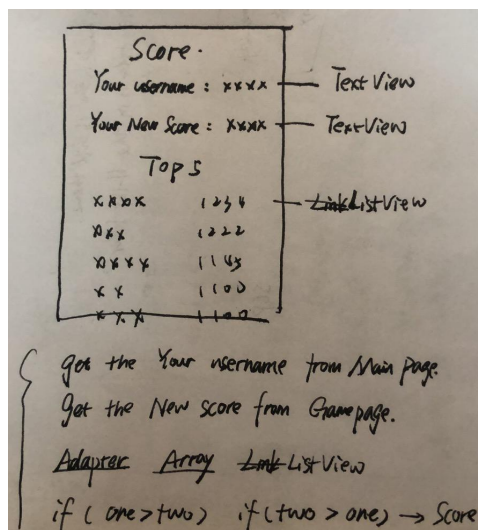 Score.
Your username : xxxx — TextView
Your New Score : xxxx — TextView
Top 5
xxxx 1234 — ListView
xxx 1222
xxxx 1145
xx 1100
xxx 1100
get the Your username from Main page.
Get the New score from Gamepage.
Adapter Array ListView
if ( one>two) if (two > one) → Score